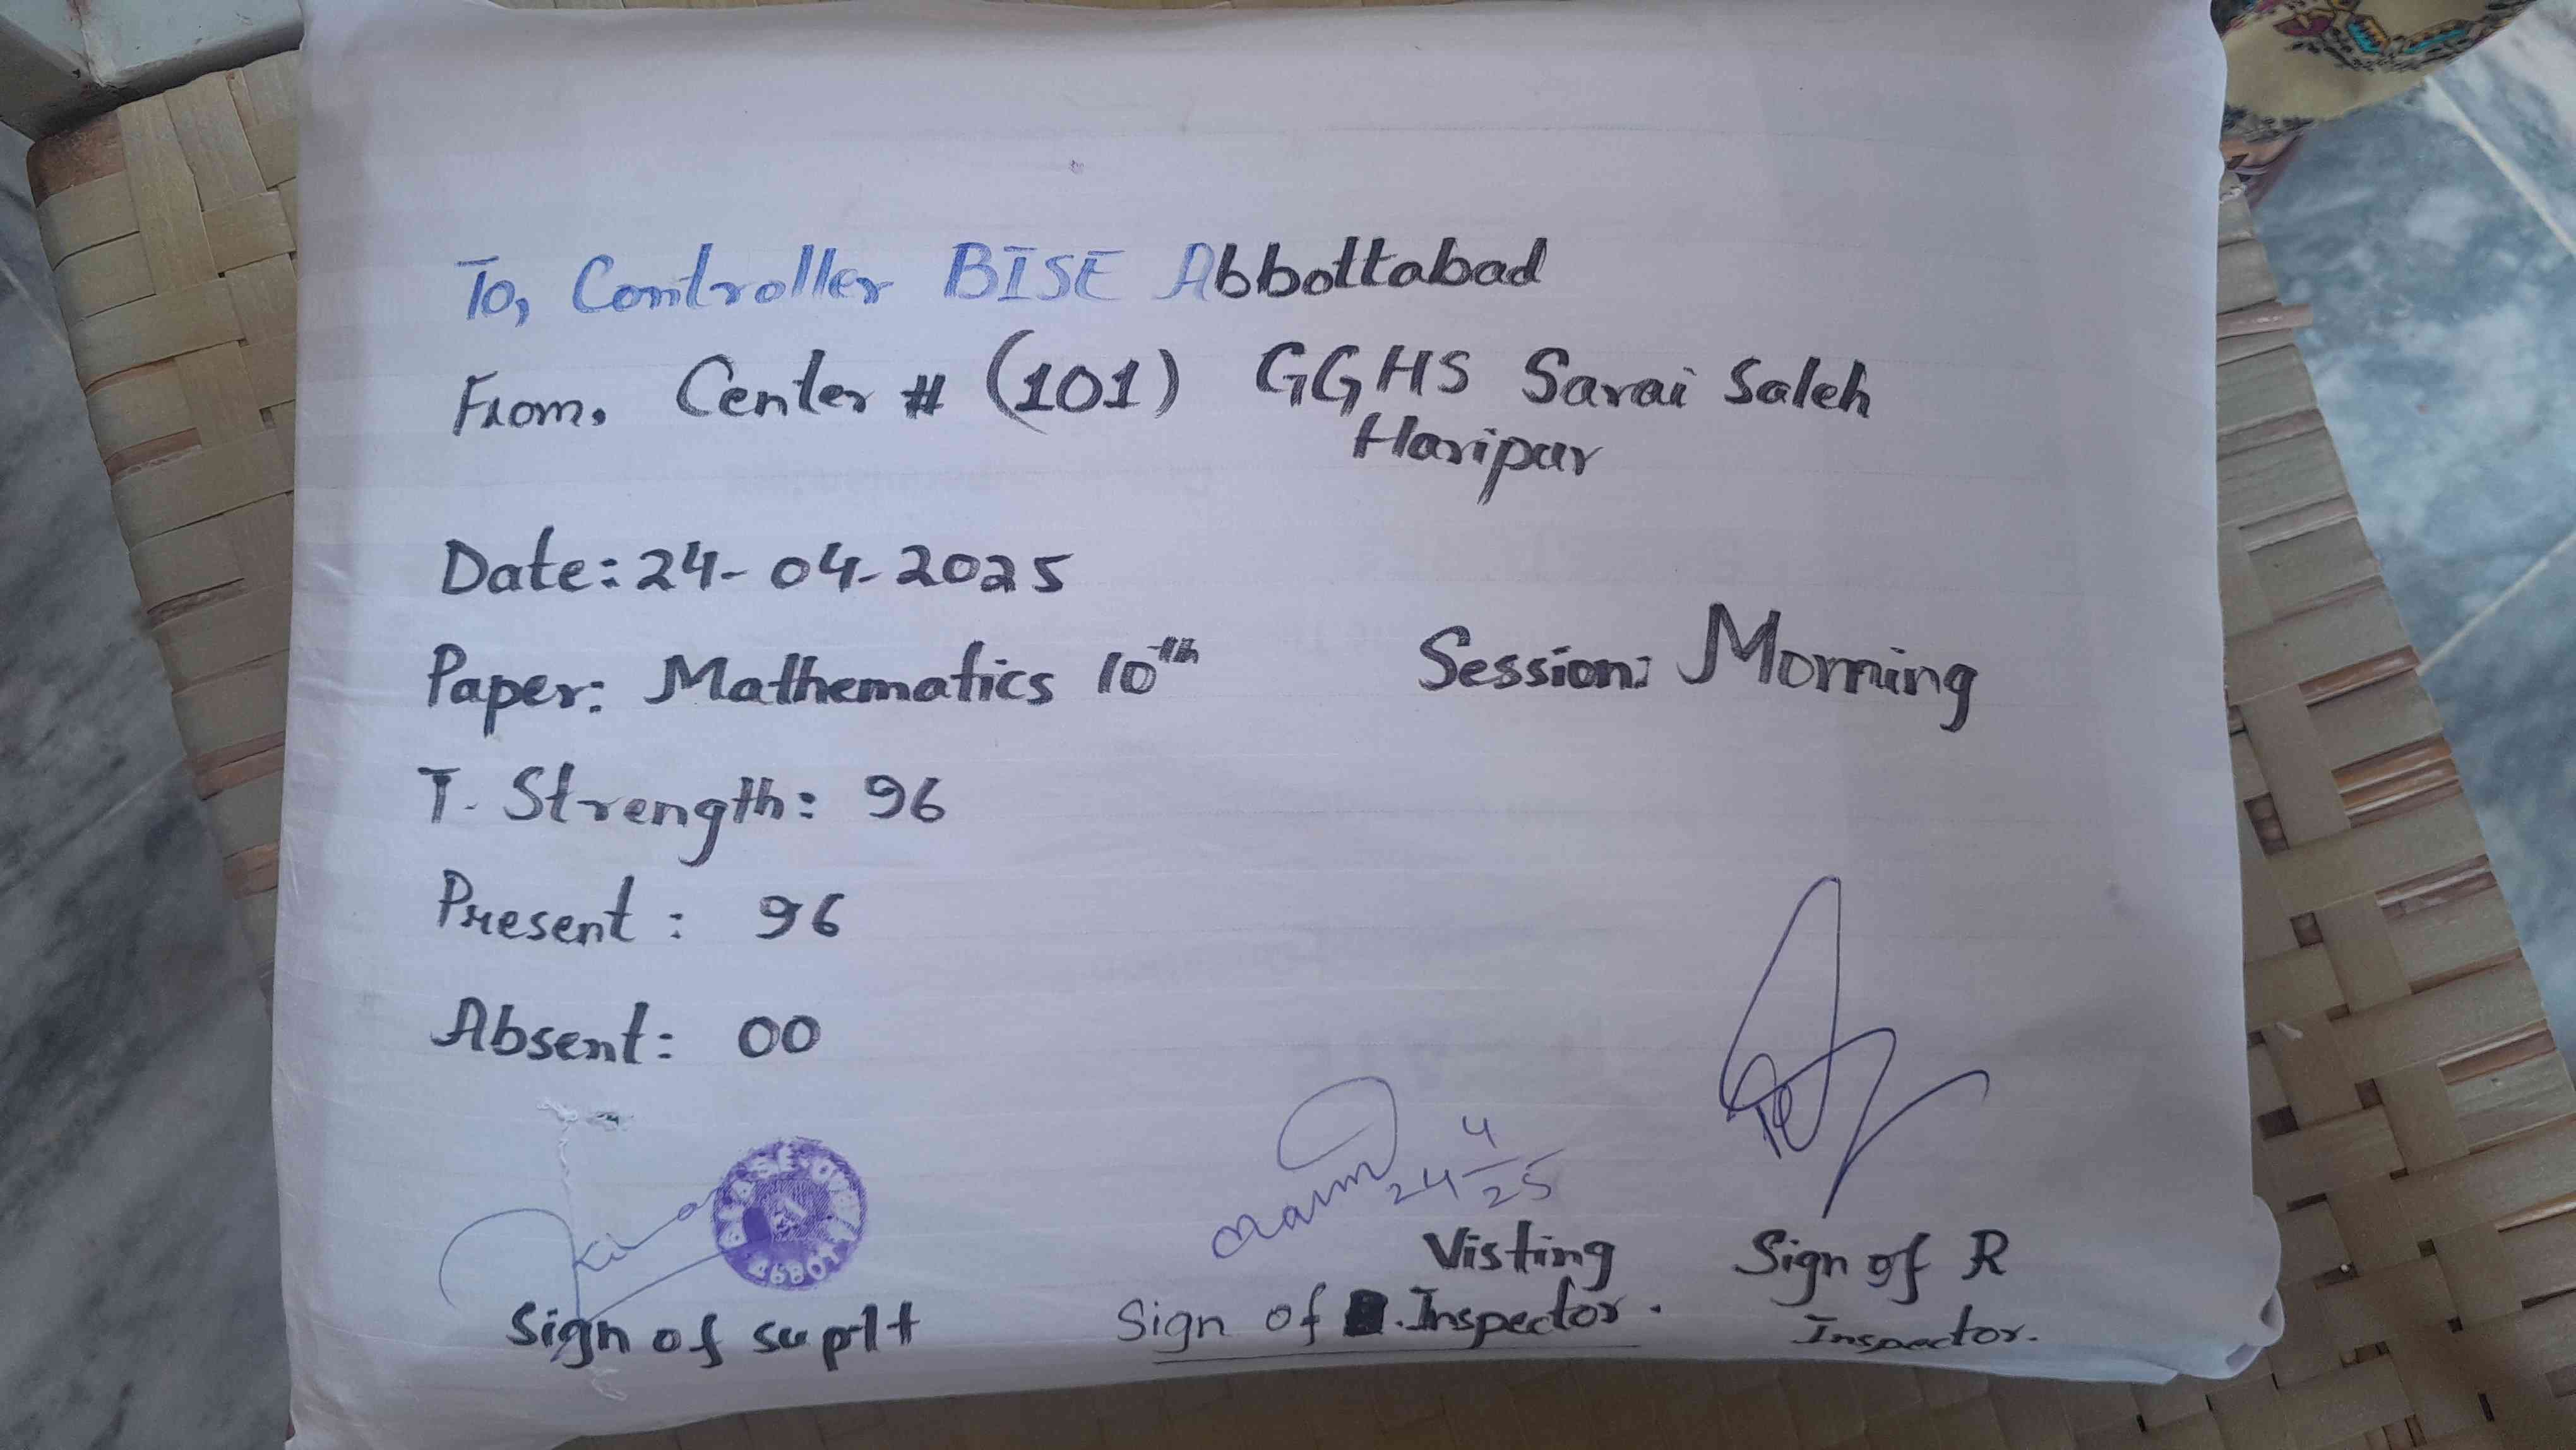 To, Controller BISE Abbottabad
From. Center # (101) GGHS Sarai Saleh
Haripur
Date: 24-04-2025
Paper: Mathematics 10th Session: Morning
T. Strength: 96
Present: 96
Absent: 00
24 4/25
Sign of suplt
Visting
Sign of .Inspector.
Sign of R
Inspector.